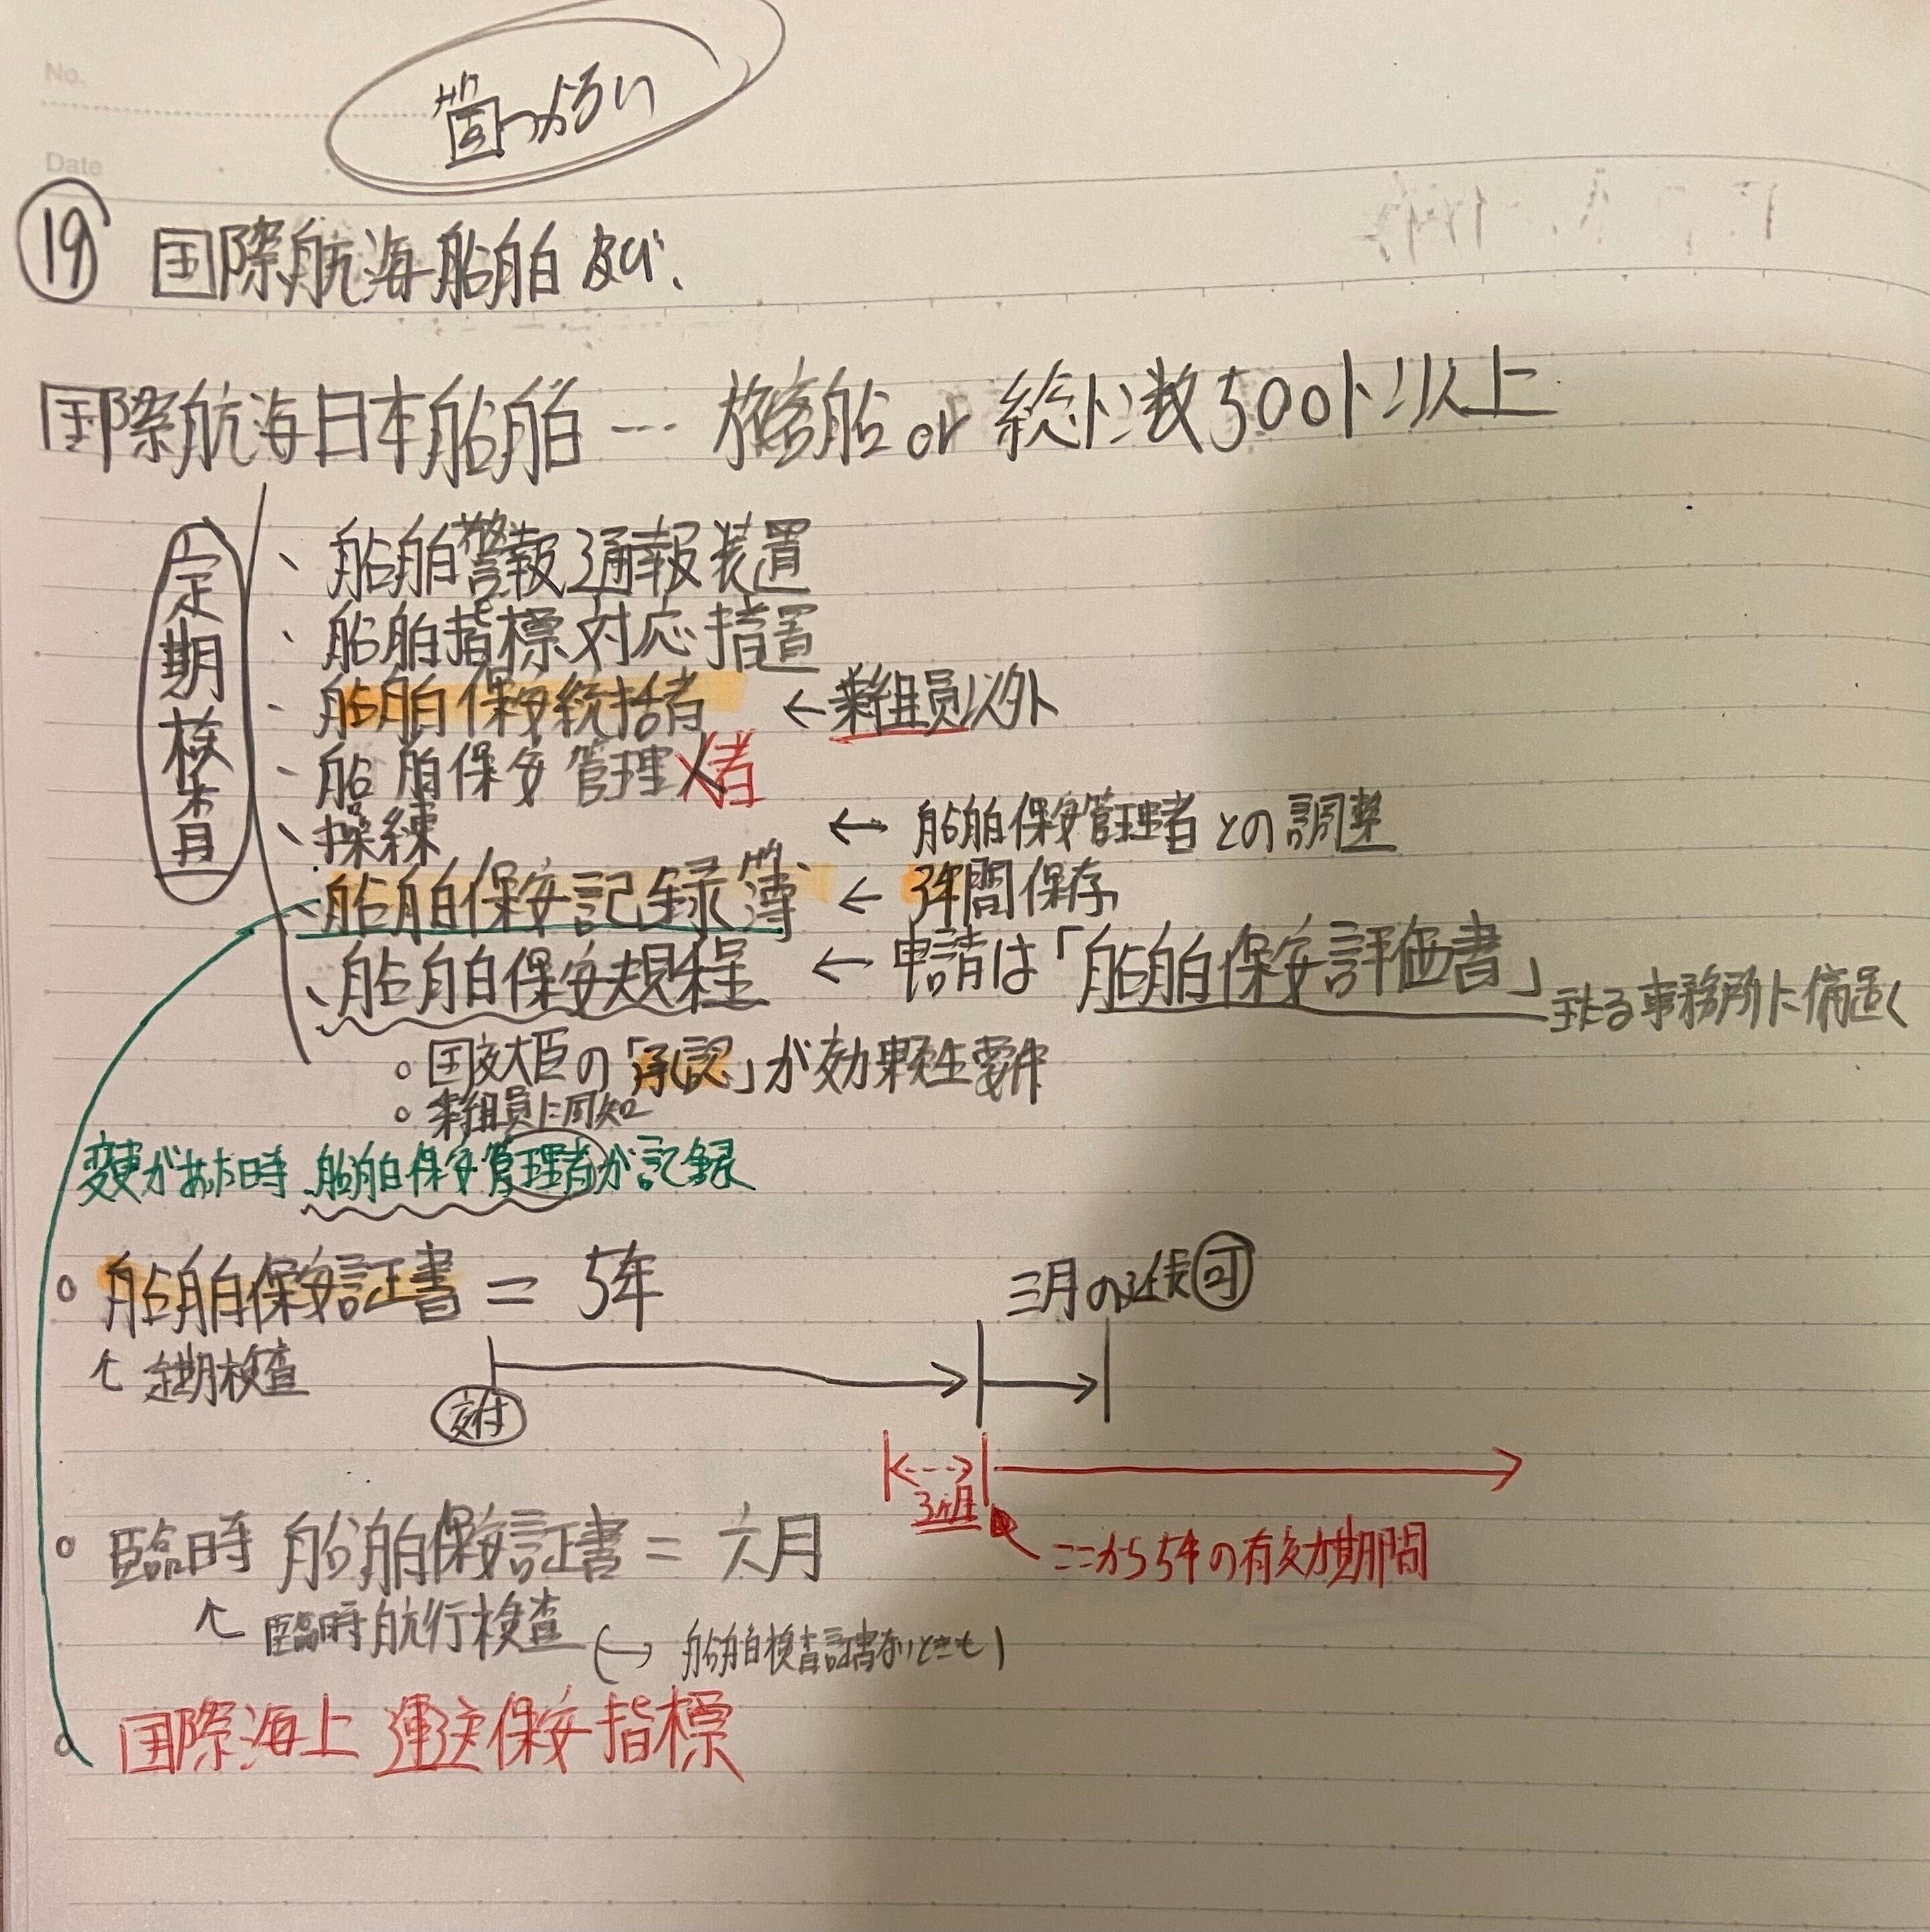 No.
Date
⑲ 国際航海船舶及び、
国際航海日本船舶 … 旅客船 or 総トン数500トン以上
定期検査
、船舶警報通報装置
、船舶指標対応措置
、船舶保安統括者 ← 乗組員以外
、船舶保安管理者
、操練 ← 船舶保安管理者との調整
、船舶保安記録簿 ← 3年間保存
、船舶保安規程 ← 申請は「船舶保安評価書」 主たる事務所に備置く
○ 国交大臣の「承認」が効果発生要件
○ 乗組員に周知
変更があった時 船舶保安管理者が記録
○ 船舶保安証書 = 5年
三月の延長可
↑ 定期検査
交付
3ヶ月
ここから5年の有効期間
○ 臨時 船舶保安証書 = 六月
↑ 臨時航行検査 (→ 船舶検査証書ないときも)
○ 国際海上運送保安指標